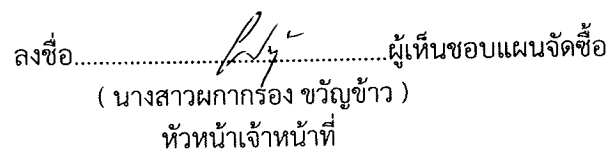 ลงชื่อ.......................................................ผู้เห็นชอบแผนจัดซื้อ
( นางสาวผกากรอง ขวัญข้าว )
หัวหน้าเจ้าหน้าที่